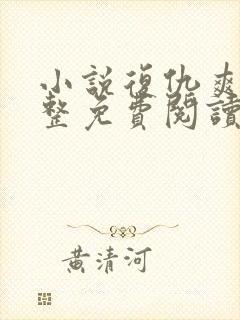 小說復仇爽
整免費閱讀
黃清河